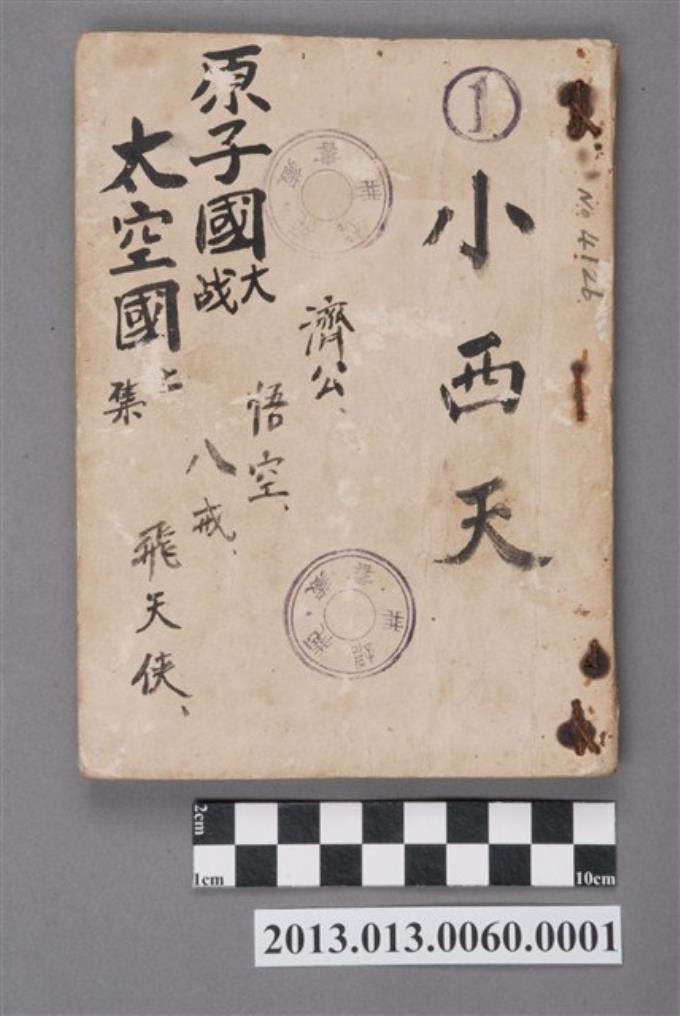 ①
小西天
No 4126
濟公、
悟空、
八戒、
飛天俠、
原子國
大战
太空國
上集
2cm
1cm
10cm
2013.013.0060.0001